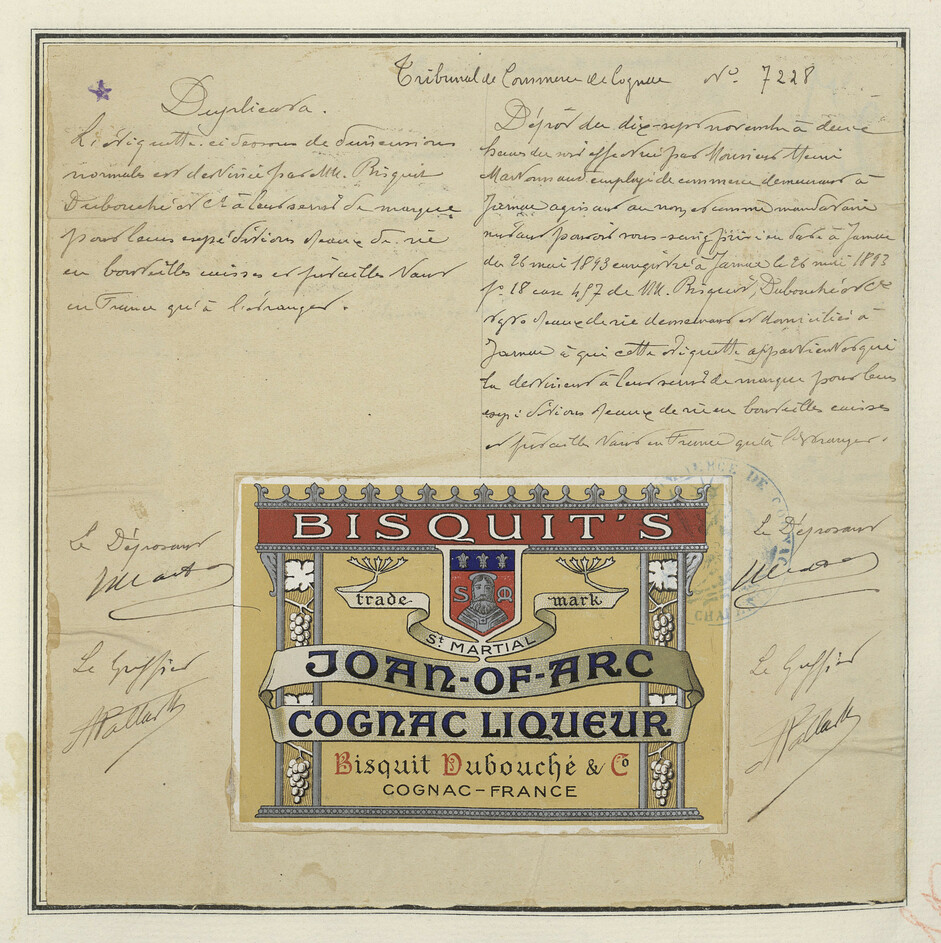 Tribunal de Commerce de Cognac N° 7228
Duplicata.
L'étiquette ci dessous de dimensions
normales est destinée par MM. Bisquit
Dubouché et Cie à leur servir de marque
pour leurs expéditions d'eaux de vie
en bouteilles caisses et futailles tant
en France qu'à l'étranger.
Dépôt du dix-sept novembre à deux
heures du soir effectué par Monsieur Henri
employé de commerce demeurant à
Jarnac agissant au nom et comme mandataire
suivant pouvoir sous-seing privé en date à Jarnac
du 26 mai 1893 enregistré à Jarnac le 26 mai 1893
fo 18 case 497 de MM. Bisquit, Dubouché et Cie
négts d'eaux de vie demeurant et domiciliés à
Jarnac à qui cette étiquette appartient et qui
la destinent à leur servir de marque pour leurs
expéditions d'eaux de vie en bouteilles caisses
et futailles tant en France qu'à l'étranger.
Le Déposant
Le Greffier
BISQUIT'S
trade mark
S Q
St MARTIAL
JOAN-OF-ARC
COGNAC LIQUEUR
Bisquit Dubouché & Co
COGNAC-FRANCE
Le Déposant
Le Greffier